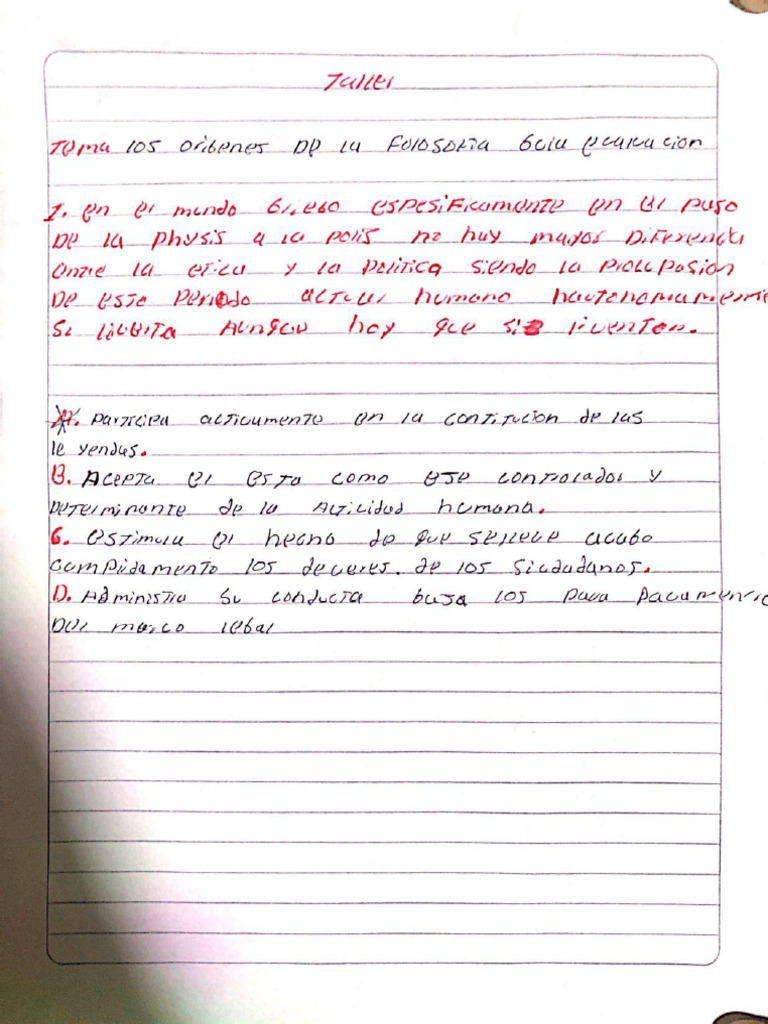 Taller
Tema los origenes DE la Folosofia Guia evaluacion
1. en el mundo Griego espesificamente en el paso
DE la physis a la polis no hay mayor Diferencia
entre la etica y la politica siendo la
De este periodo actuar humano
Se aunque hay que
A. participa activamente en la contitucion de las
leyendas.
B. Acepta el esta como eje controlador y
Determinante de la Actividad humana.
C. estimula el hecho de que se lleve acabo
los deveres. de los siudadanos.
D. Administra su conducta baja los para
Del marco legal